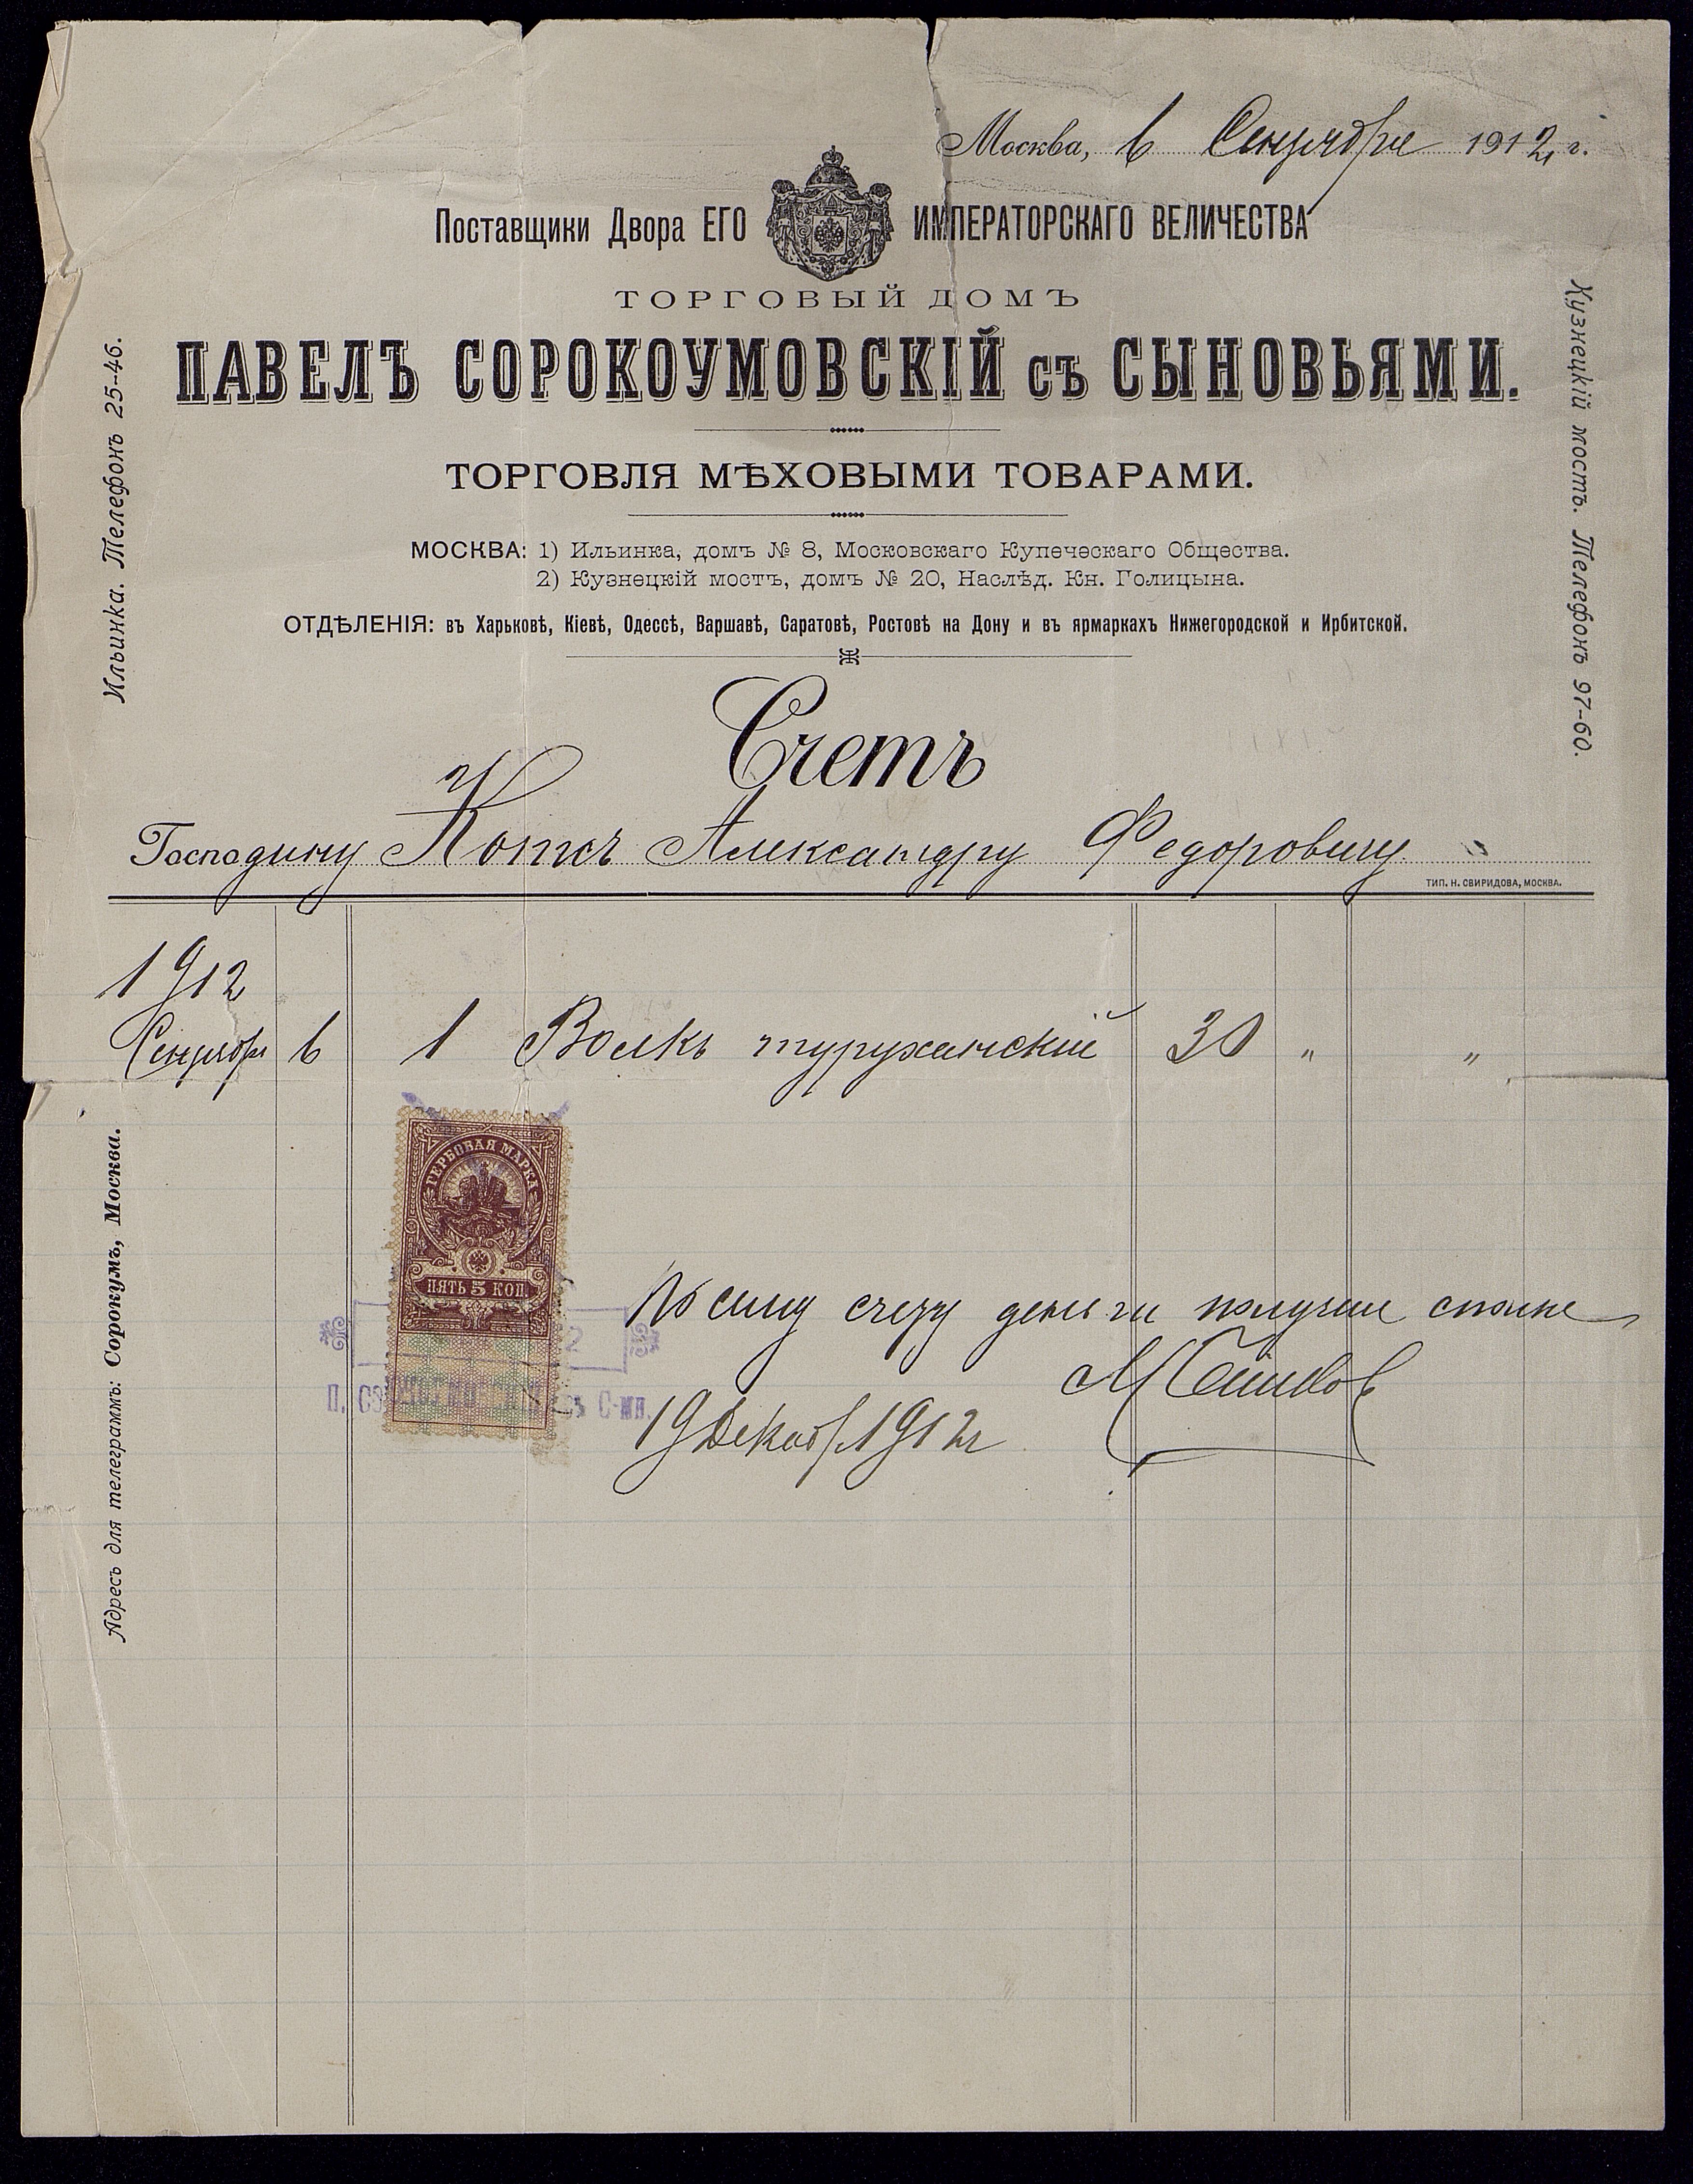 Москва, 6 Сентября 1912 г.
Поставщики Двора ЕГО ИМПЕРАТОРСКАГО ВЕЛИЧЕСТВА
ТОРГОВЫЙ ДОМЪ
ПАВЕЛЪ СОРОКОУМОВСКІЙ съ СЫНОВЬЯМИ.
ТОРГОВЛЯ МѢХОВЫМИ ТОВАРАМИ.
МОСКВА: 1) Ильинка, домъ № 8, Московскаго Купеческаго Общества.
2) Кузнецкій мостъ, домъ № 20, Наслѣд. Кн. Голицына.
ОТДѢЛЕНІЯ: въ Харьковѣ, Кіевѣ, Одессѣ, Варшавѣ, Саратовѣ, Ростовѣ на Дону и въ ярмаркахъ Нижегородской и Ирбитской.
Ильинка. Телефонъ 25-46.
Кузнецкій мостъ. Телефонъ 97-60.
Счетъ
Господину Котсъ Александру Федоровичу
ТИП. Н. СВИРИДОВА, МОСКВА.
1912
Сентябр 6 1 Волкъ туруханскій 30 " "
Адресъ для телеграммъ: Сорокумъ, Москва.
ГЕРБОВАЯ МАРКА
ПЯТЬ 5 КОП
2
П. С-МИ.
По сему счету деньги получил сполна
19 Декабр 1912 г